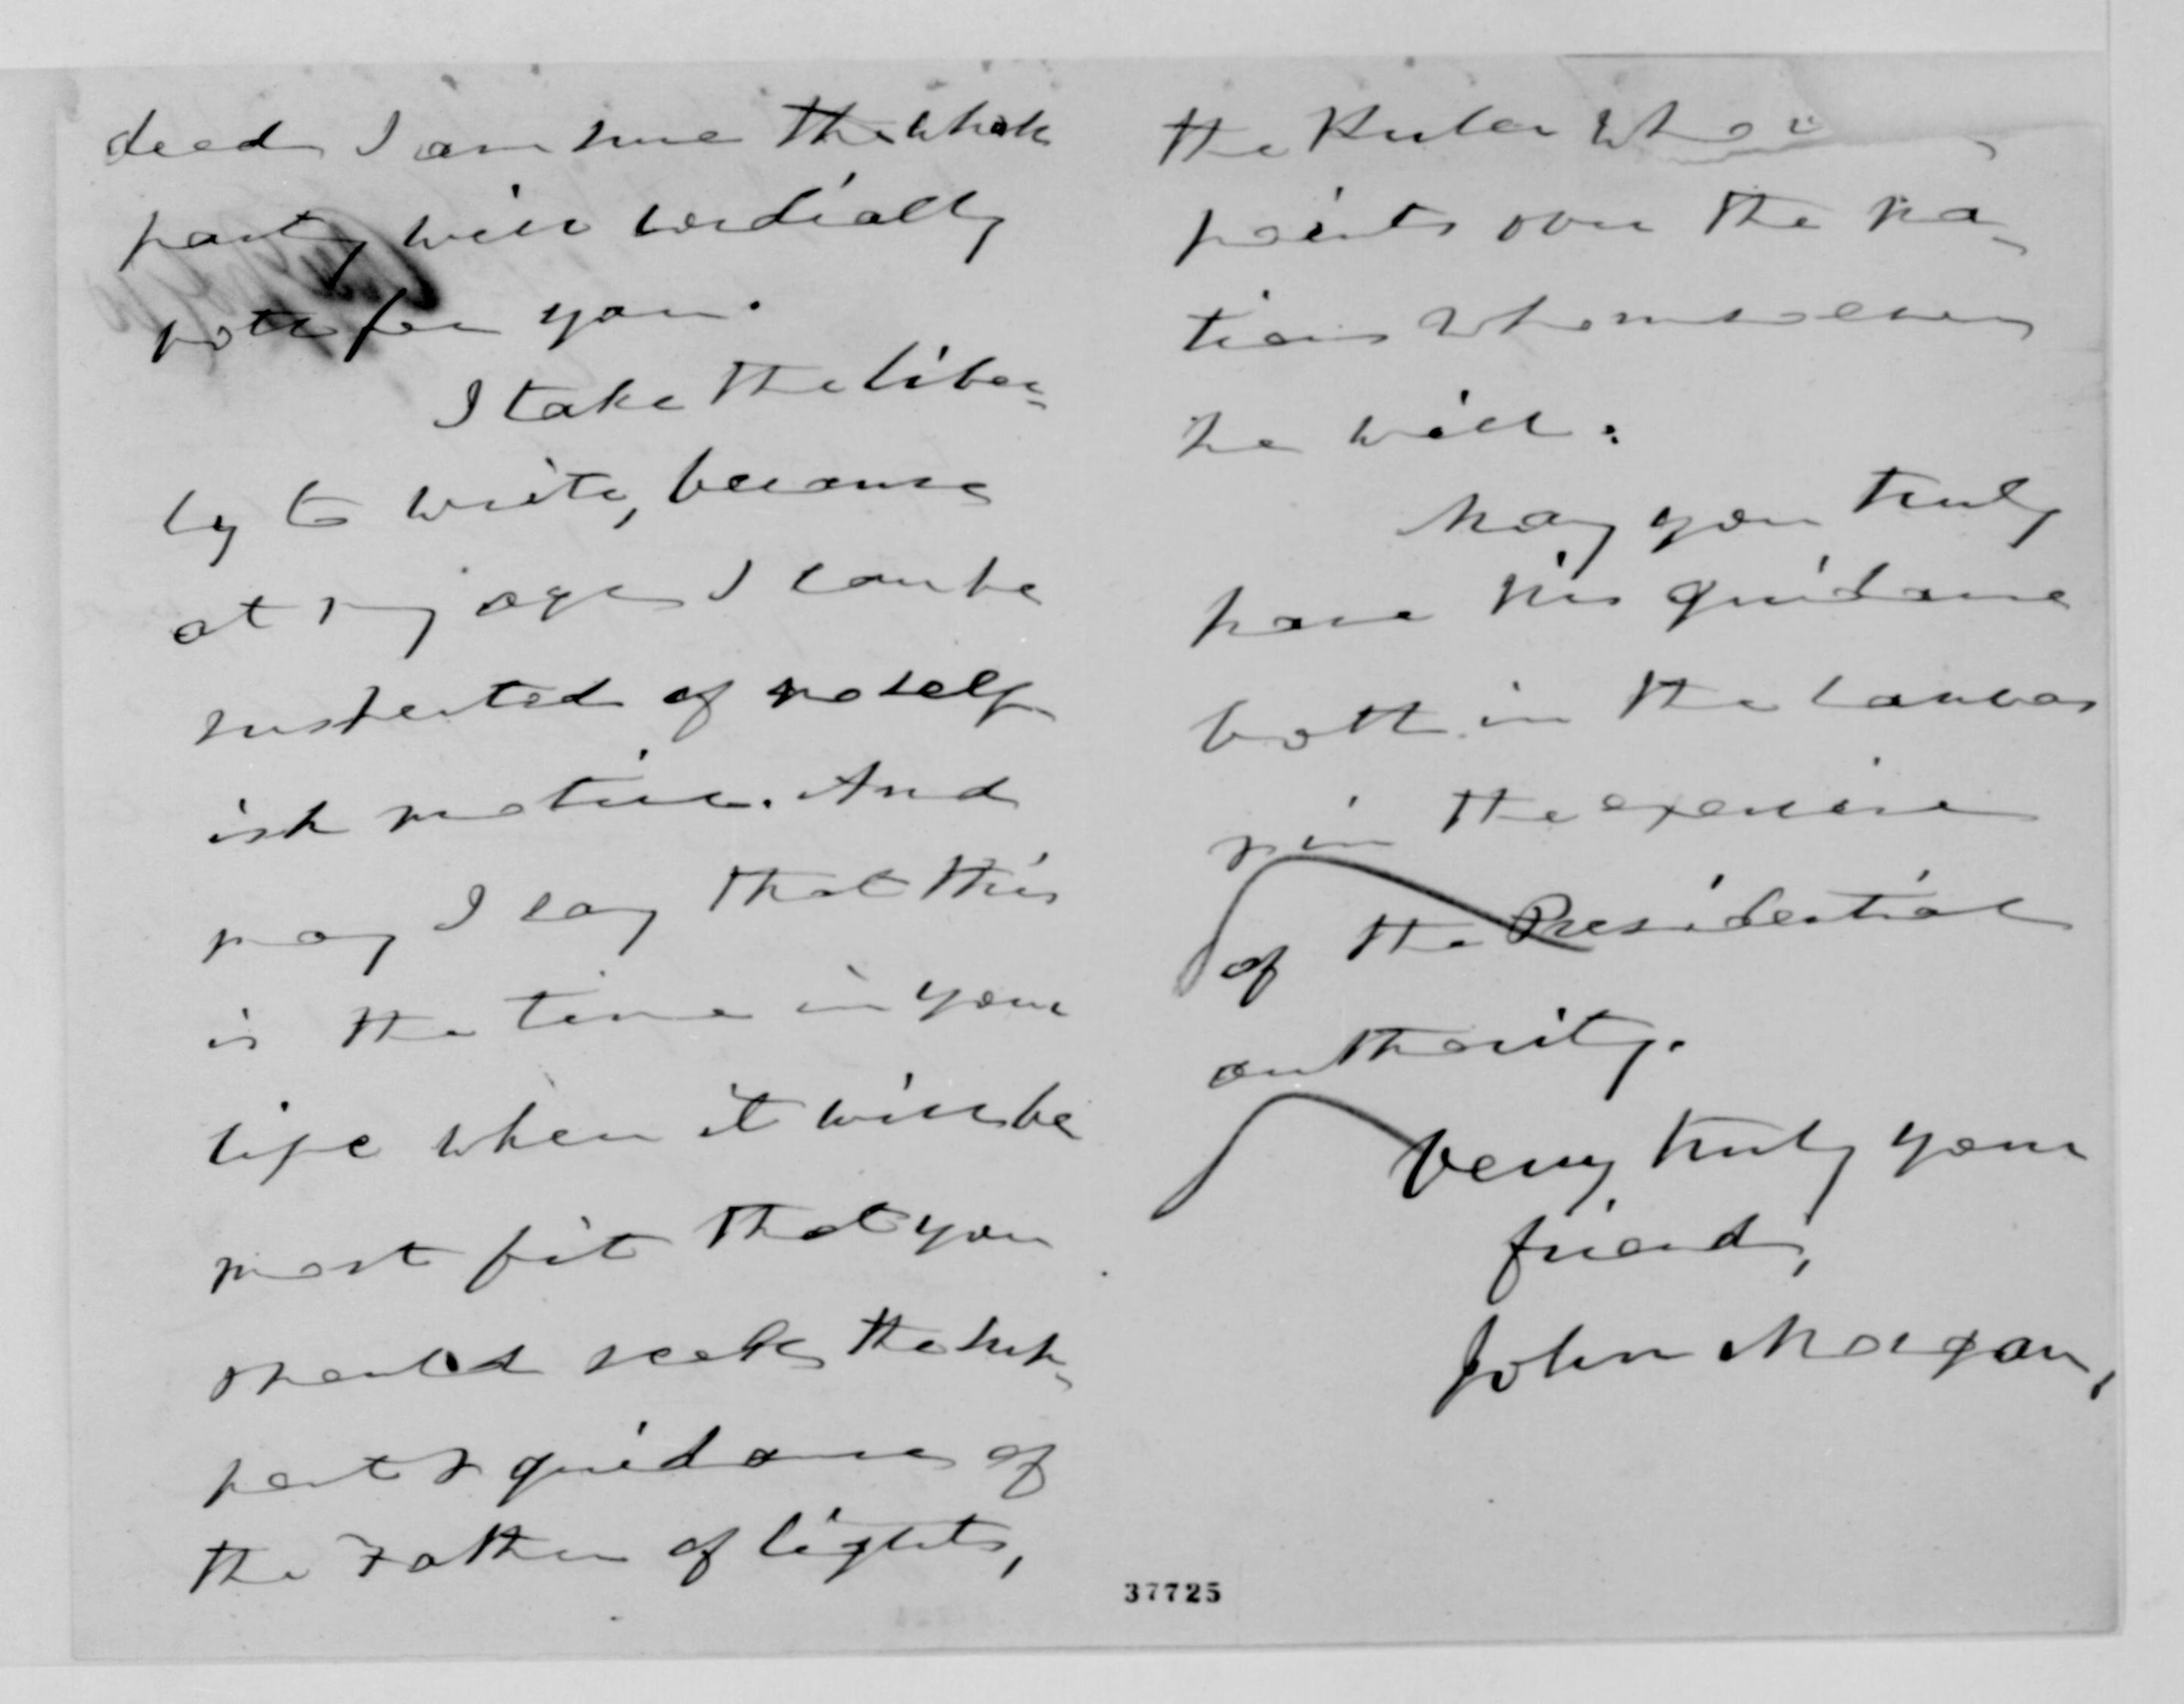 deed I am sure the whole
party will cordially
vote for you.
I take the liber-
ty to write, because
at my age I can be
suspected of no self
ish motive. And
may I say that this
is the time in your
life when it will be
most fit that you
should seek the sup-
port & guidance of
the Father of lights,
the Ruler who
points over the na-
tions whomsoever
he will.
May you truly
have his guidance
both in the canvas
& in the exercise
of the Presidential
authority.
Very truly your
friend,
John Morgan,
37725